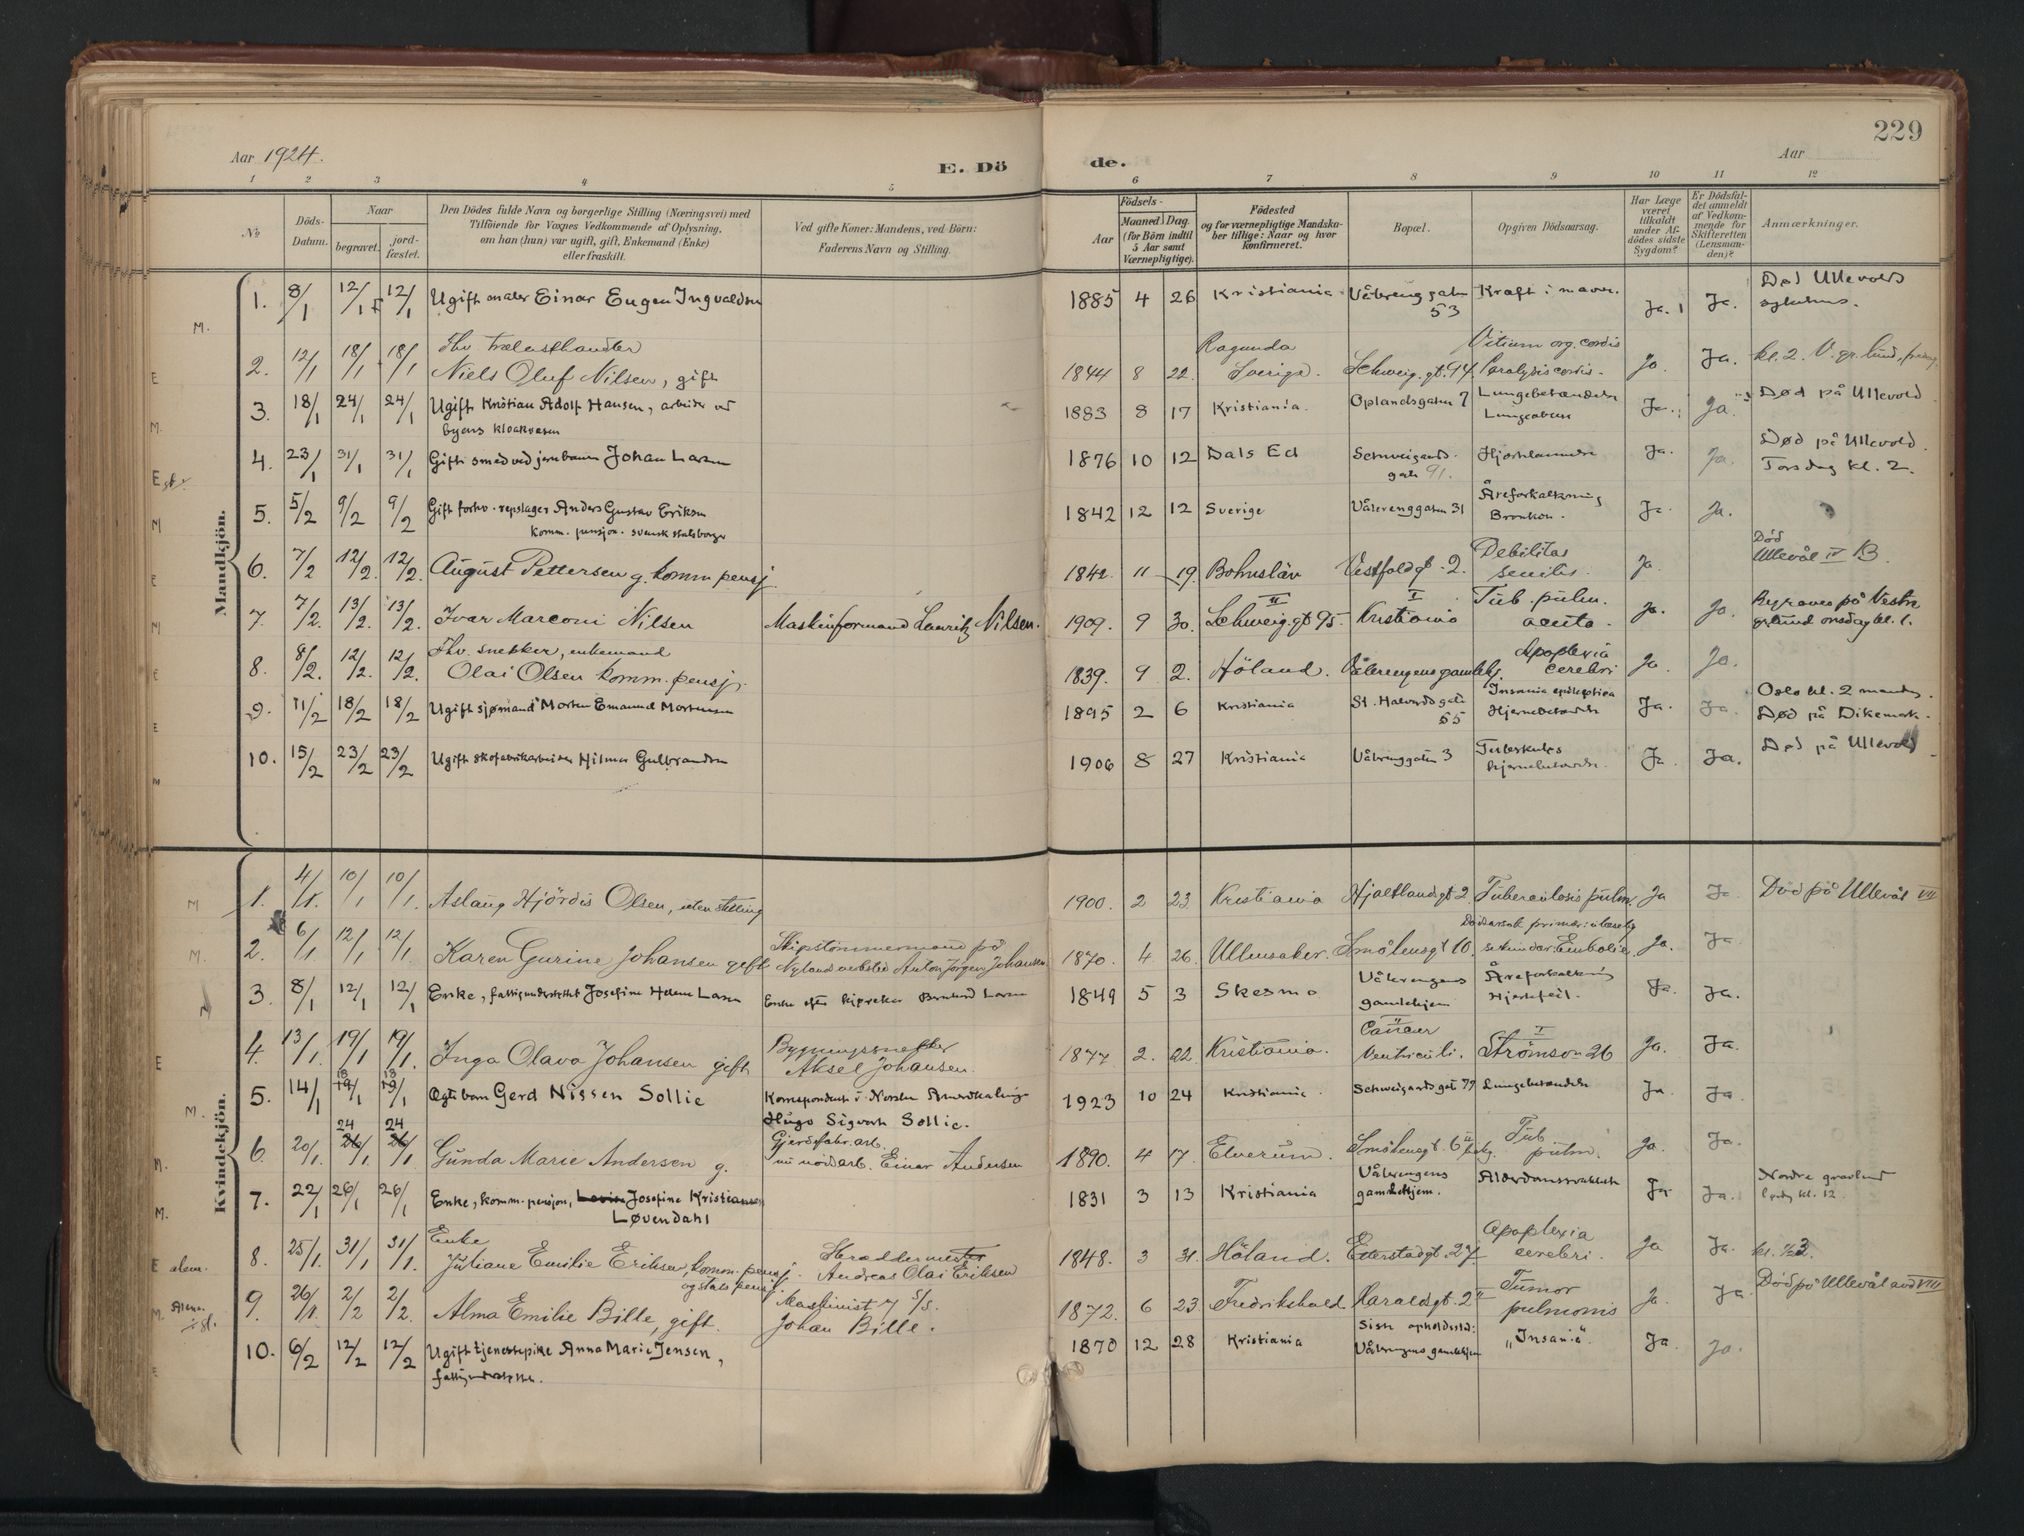 229
Aar 1924.
E. Dö
de.
Aar
1 2 3 4 5 6 7 8 9 10 11 12
No
Döds-Datum.
Naar
begravet.
jord-fæstet.
Den Dödes fulde Navn og borgerlige Stilling (Næringsvei) med
Tilföiende for Voxnes Vedkommende af Oplysning,
om han (hun) var ugift, gift, Enkemand (Enke)
eller fraskilt.
Ved gifte Koner: Mandens, ved Börn:
Faderens Navn og Stilling.
Födsels-
Aar
Maaned Dag
(for Börn indtil
5 Aar samt
Værnepligtige).
Födested
og for værnepligtige Mandska-
ber tillige: Naar og hvor
konfirmeret.
Bopæl.
Opgiven Dödsaarsag.
Har Læge
været
tilkaldt
under Af-
dödes sidste
Sygdom?
Er Dödsfal-
det anmeldt
af Vedkom-
mende for
Skifteretten
(Lensman-
den)?
Anmærkninger.
Mandkjön.
1. 8/1 12/1 12/1 Ugift maler Einar Eugen Ingvaldsen 1885 4 26 Kristiania Vålerenggaten 53 Kræft i maven. Ja. Ja. Død Ullevold
sykehus.
2. 12/1 18/1 18/1 Fhv. trælasthandler
Niels Oluf Nilsen, gift 1844 8 22. Ragunda
Sverige. Schweig. gt. 94. Vitium org. cordis
Paralysis cordis. Ja. Ja. kl. 2. V. gr. lund,
3. 18/1 24/1 24/1 Ugift Kristian Adolf Hansen, arbeider ved
byens kloakvæsen 1883 8 17 Kristiania. Oplandsgaten 7 Lungebetændelse
Ja. Ja. Død på Ullevold.
4. 23/1 31/1 31/1 Gift smed ved jernbanen Johan Larsen 1876 10 12 Dals Ed Schweigaards-
gate 91. Ja. Ja. Død på Ullevold.
Torsdag kl. 2.
5. 5/2 9/2 9/2 Gift forhv. repslager Anders Gustav Eriksen
komm. pensjon. svensk statsborger 1842 12 12 Sverige Vålerenggaten 31 Åreforkalkning
Ja. Ja.
6. 7/2 12/2. 12/2. August Pettersen g. komm. pensj. 1842 11 19. Bohuslän Vestfoldgt. 2. Debilitas
senilis. Ja. Død
Ullevål IV B.
7. 7/2. 13/2. 13/2. Ivar Marconi Nilsen Maskinformand Lauritz Nilsen. 1909. 9 30. II
Schweig. gt 95. I
Kristiania Tub. pulm.
acuta. Ja. Ja. på Vestre
gr.lund onsdag kl. 1.
8. 8/2. 12/2. 12/2. Fhv. snekker, enkemand
Olai Olsen komm. pensj. 1839. 9 2. Höland. Vålerengens gamlehj. Apoplexia
cerebri Ja Ja.
9. 11/2 18/2 18/2 Ugift sjømand Morten Emanuel Mortensen 1895 2 6 Kristiania St. Halvards gate
55 Insania epileptica
Hjernebetændelse Ja. Ja. Oslo kl. 2 mandag.
Død på Dikemark.
10. 15/2 23/2 23/2 Ugift skofabrikarbeider Hilmar Gulbrandsen 1906 8 27 Kristiania Vålerenggaten 3 Tuberkuløs
hjernebetændelse. Ja. Ja. Død på Ullevold
Kvindekjön.
1. 4/1. 10/1 10/1 Aslaug Hjördis Olsen, uten stilling 1900. 2 23. Kristiania Hjaltlandsgt 2 Tuberculosis pulm. Ja Ja Död på Ullevål VII
2. 6/1 12/1 12/1 Karen Gurine Johansen gift Skipstömmermand på
Nylands verksted Anton Jörgen Johansen 1870. 4 26. Ullensaker. Smålensgt 10. Dödsarsak primær: ulæselig
sekundær: Embolie. Ja. Ja
3. 8/1 12/1 12/1 Enke, fattigunderstøttet Josefine Helene Larsen Enke efter Bernhard Larsen 1849 5 3 Skesmo Vålerengens
gamlehjem. Åreforkalkning
Hjertefeil. Ja. Ja.
4. 13/1. 19/1 19/1. Inga Olava Johansen gift Bygningssnekker
Aksel Johansen. 1877 2. 22. Kristiania. II
Cancer
Ventriculi. I
Strömsvn 26 Ja. Ja.
5. 14/1 18
19/1 18
19/1 Ogte barn Gerd Nissen Sollie Korrespondent i Norske Amerikalinje
Hugo Sigvart Sollie. 1923 10 24 Kristiania. Schweigaardsgate 77 Lungebetændelse Ja Ja
6. 20/1. 24
26/1 24
26/1 Gunda Marie Andersen g. Gjerdefabr. arb.
nu nödsarb. Einar Andersen 1890. 4 17. Elverum. Smålensgt. 6 II Tub
pulm. Ja Ja.
7. 22/1 26/1 26/1 Enke, komm. pensjon, Josefine Kristiansen
Løvendahl 1831 3 13 Kristiania Vålerengens
gamlehjem. Alderdomssvakhet Ja Ja. Nordre gravlund
kl. 12.
8. 25/1. 31/1 31/1. Enke
Juliane Emilie Eriksen, komm. pensj.
og stats pensj. Skræddermester
Andreas Olai Eriksen 1848. 3 31. Höland. Etterstadgt. 27. Apoplexia
cerebri. Ja Ja.
9. 26/1 2/2 2/2. Alma Emilie Bille, gift. Maskinist S/S.
Johan Bille. 1872. 6 23. Fredrikshald. Haraldsgt. 2 II Tumor
pulmonis Ja. Ja Död på Ullevål avd VIII
10. 6/2 12/2 12/2 Ugift tjenestepike Anna Marie Jensen,
fattigunderstøttet. 1870 12 28 Kristiania Siste opholdssted:
Vålerengens gamlehjem "Insania". Ja. Ja.